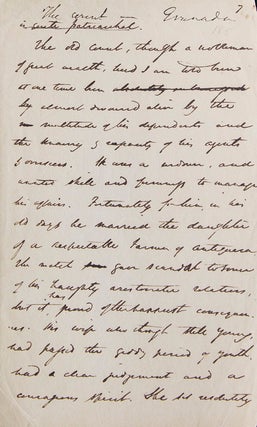 The count Granada 7
in quite patriarchal.
The old count, though a nobleman
of great wealth, had I am told been
at one time been
by almost devoured alive by the
multitude of his dependents and
the knavery & rapacity of his agents
& overseers. He was a widower, and
wanted skill and firmness to manage
his affairs. Fortunately for him, in his
old days he married the daughter
of a respectable farmer of Antiquera
The match gave scandal to some
of his haughty aristocratic relatives,
but it has proved of the happiest consequen
ces. His wife who though still young,
had passed the giddy period of youth,
had a clear judgement and a
courageous spirit. She set resolutely